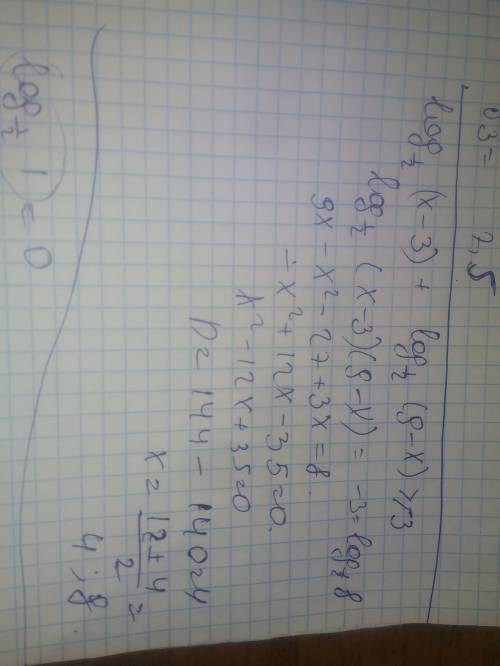 03 = 2,5
log½ (x-3) + log½ (9-x) ≥ -3
log½ (x-3)(9-x) = -3 = log½ 8
9x - x² - 27 + 3x = 8
-x² + 12x - 35 = 0
x² - 12x + 35 = 0
D = 144 - 140 = 4
x = (12 ± 4)/2 =
4; 8
log½ 1 = 0